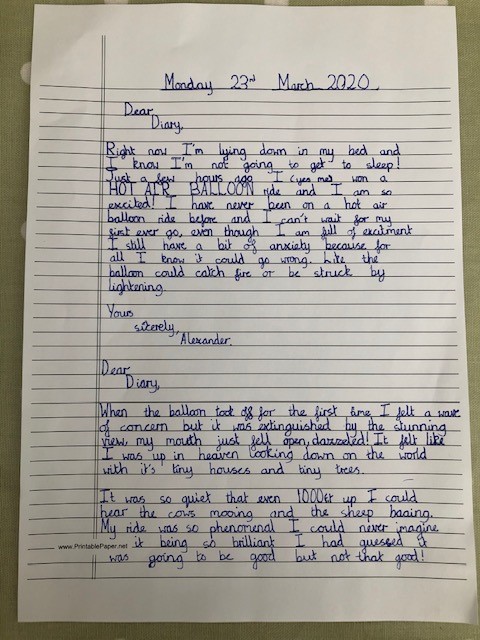 Monday 23rd March 2020
Dear
Diary,
Right now I'm lying down in my bed and
I know I'm not going to get to sleep!
Just a few hours ago I (yes me) won a
HOT AIR BALLOON ride and I am so
excited! I have never been on a hot air
balloon ride before and I can't wait for my
first ever go, even though I am full of excitment
I still have a bit of anxiety because for
all I know it could go wrong. Like the
balloon could catch fire or be struck by
lightening.
Yours
sicerely,
Alexander.
Dear
Diary,
When the balloon took off for the first time I felt a wave
of concern but it was extinguished by the stunning
view, my mouth just fell open, dazzeled! It felt like
I was up in heaven looking down on the world
with it's tiny houses and tiny trees.
It was so quiet that even 1000ft up I could
hear the cows mooing and the sheep baaing.
My ride was so phenomenal I could never imagine
www.PrintablePaper.net it being so brilliant I had guessed it
was going to be good but not that good!